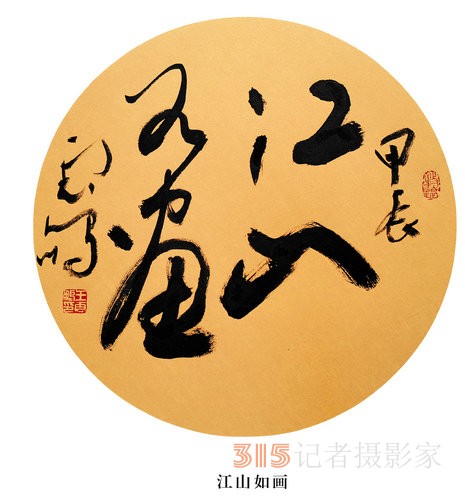 甲辰
江山
如画
315记者摄影家
江山如画